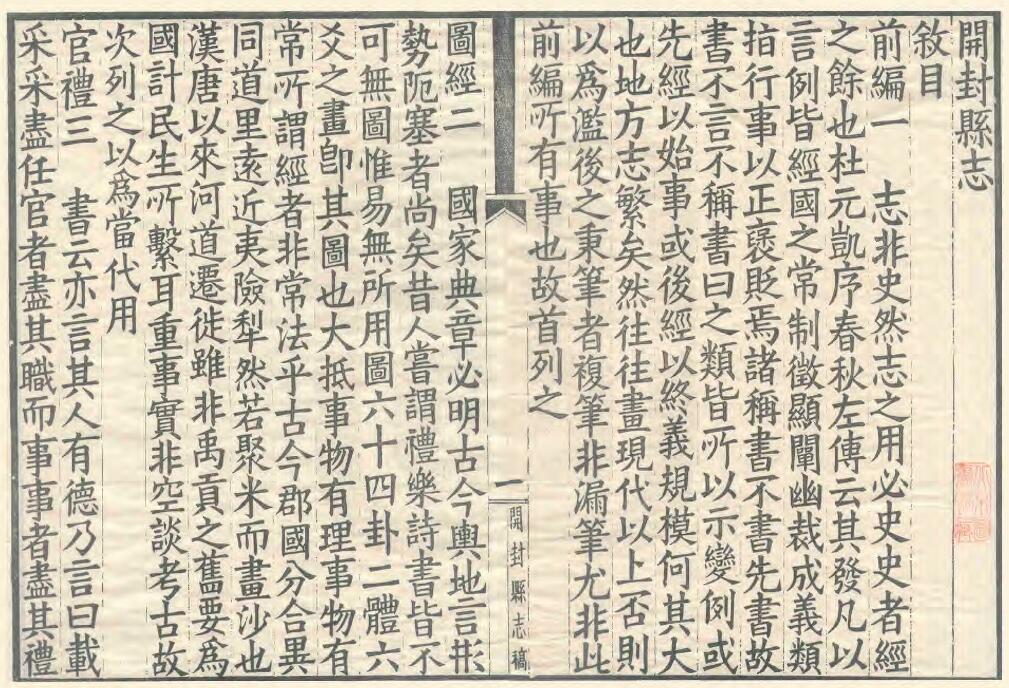 開封縣志
敘目
前編一　志非史然志之用必史史者經
之餘也杜元凱序春秋左傳云其發凡以
言例皆經國之常制徵顯闡幽裁成義類
指行事以正襃貶焉諸稱書不書先書故
書不言不稱書曰之類皆所以示變例或
先經以始事或後經以終義規模何其大
也地方志繁矣然往往畫現代以上否則
以爲濫後之秉筆者複筆非漏筆尤非此
前編所有事也故首列之
一
開封縣志稿
圖經二　國家典章必明古今輿地言形
勢阨塞者尚矣昔人嘗謂禮樂詩書皆不
可無圖惟易無所用圖六十四卦二體六
爻之畫卽其圖也大抵事物有理事物有
常所謂經者非常法乎古今郡國分合異
同道里遠近夷險犁然若聚米而畫沙也
漢唐以來河道遷徙雖非禹貢之舊要爲
國計民生所繫耳重事實非空談考古故
次列之以爲當代用
官禮三　書云亦言其人有德乃言曰載
采采盡任官者盡其職而事事者盡其禮